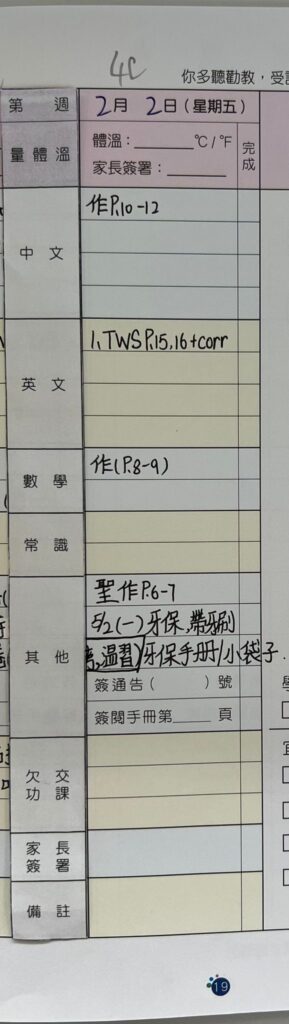 4C
你多聽勸教，受
第 週
2月 2日(星期五)
量體溫
體溫：______℃/℉
家長簽署：______
完成
中文
作P.10-12
英文
1. TWS P.15,16+corr
數學
作(P.8-9)
常識
其他
聖作P.6-7
5/2(一)牙保,帶牙刷
溫習)牙保手册/小袋子.
簽通告( )號
簽閱手冊第____頁
欠交功課
家長簽署
備註
19